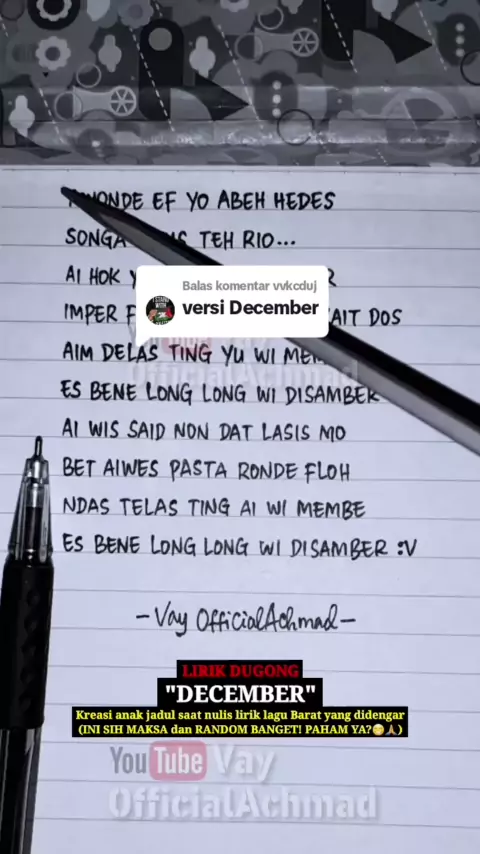 EF YO ABEH HEDES
SONGA TEH RIO...
AI HOK
Balas komentar vvkcduj
versi December
IMPER AIT DOS
AIM DELAS TING YU WI
ES BENE LONG LONG WI DISAMBER
AI WIS SAID NON DAT LASIS MO
BET AIWES PASTA RONDE FLOH
NDAS TELAS TING AI WI MEMBE
ES BENE LONG LONG WI DISAMBER :V
-Vay OfficialAchmad-
LIRIK DUGONG
"DECEMBER"
Kreasi anak jadul saat nulis lirik lagu Barat yang didengar
(INI SIH MAKSA dan RANDOM BANGET! PAHAM YA?😁🙏)
YouTube Vay
OfficialAchmad